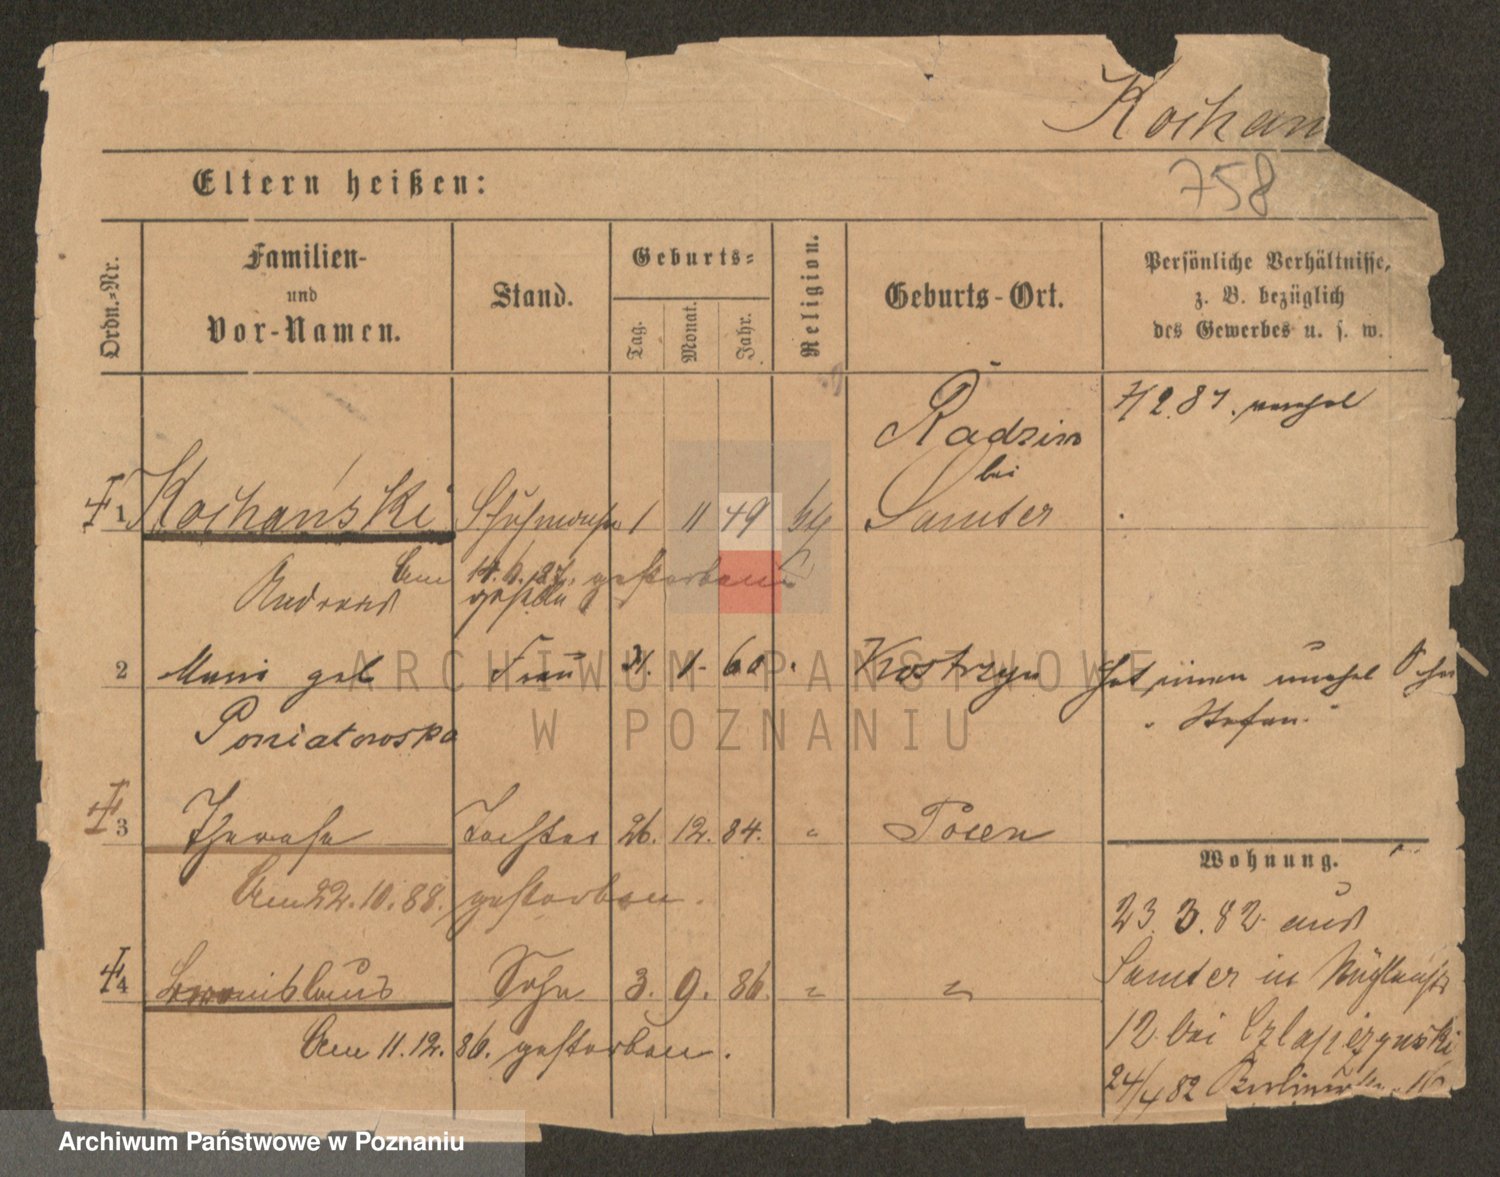 Kochan
758
Eltern heißen:
Ordn.-Nr.
Familien-
und
Vor-Namen.
Stand.
Geburts-
Tag.
Monat.
Jahr.
Religion.
Geburts-Ort.
Persönliche Verhältnisse,
z. B. bezüglich
des Gewerbes u. s. w.
Radzim
bei
Samter
1 Kochański 1 11 49 kth
Am 14.6.87. gestorben
Andreas
2 geb Frau 21. 1. 60. Kostrzyn
Hat einen unehel Sohn
Poniatowska
Stefan.
3 Therese Tochter 26. 12. 84. " Posen
Am 22.10.88. gestorben.
4 Bronislaus Sohn 3. 9. 86. " "
Am 11.12.86. gestorben.
Wohnung.
23 3.82 aus
Samter in
12 bei
24/4 82 16
ARCHIWUM PAŃSTWOWE
W POZNANIU
Archiwum Państwowe w Poznaniu